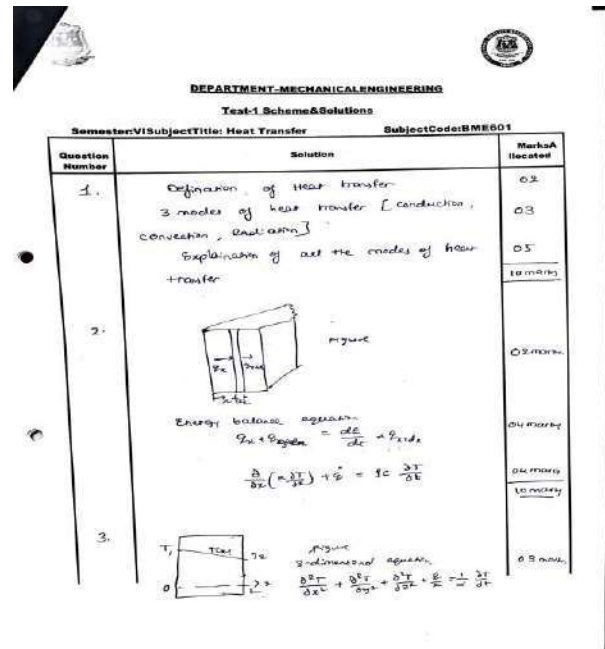 DEPARTMENT-MECHANICALENGINEERING
Test-1 Scheme&Solutions
Semester:VISubjectTitle: Heat Transfer SubjectCode:BME601
Question Number Solution MarksA llocated
1. Defination of Heat transfer 02
3 modes of heat transfer [conduction, 03
convection, Radiation]
Explaination of all the modes of heat 05
transfer 10 marks
2. Figure 02 marks
Energy balance equation 04 marks
= dE/dt + q x+dx
∂/∂x (k ∂T/∂x) + q̇ = ρc ∂T/∂t 04 marks
10 marks
3. T1 T(x) T2 Figure
3-dimensional equation 03 marks
0 L ∂²T/∂x² + ∂²T/∂y² + ∂²T/∂z² + = 1/α ∂T/∂t